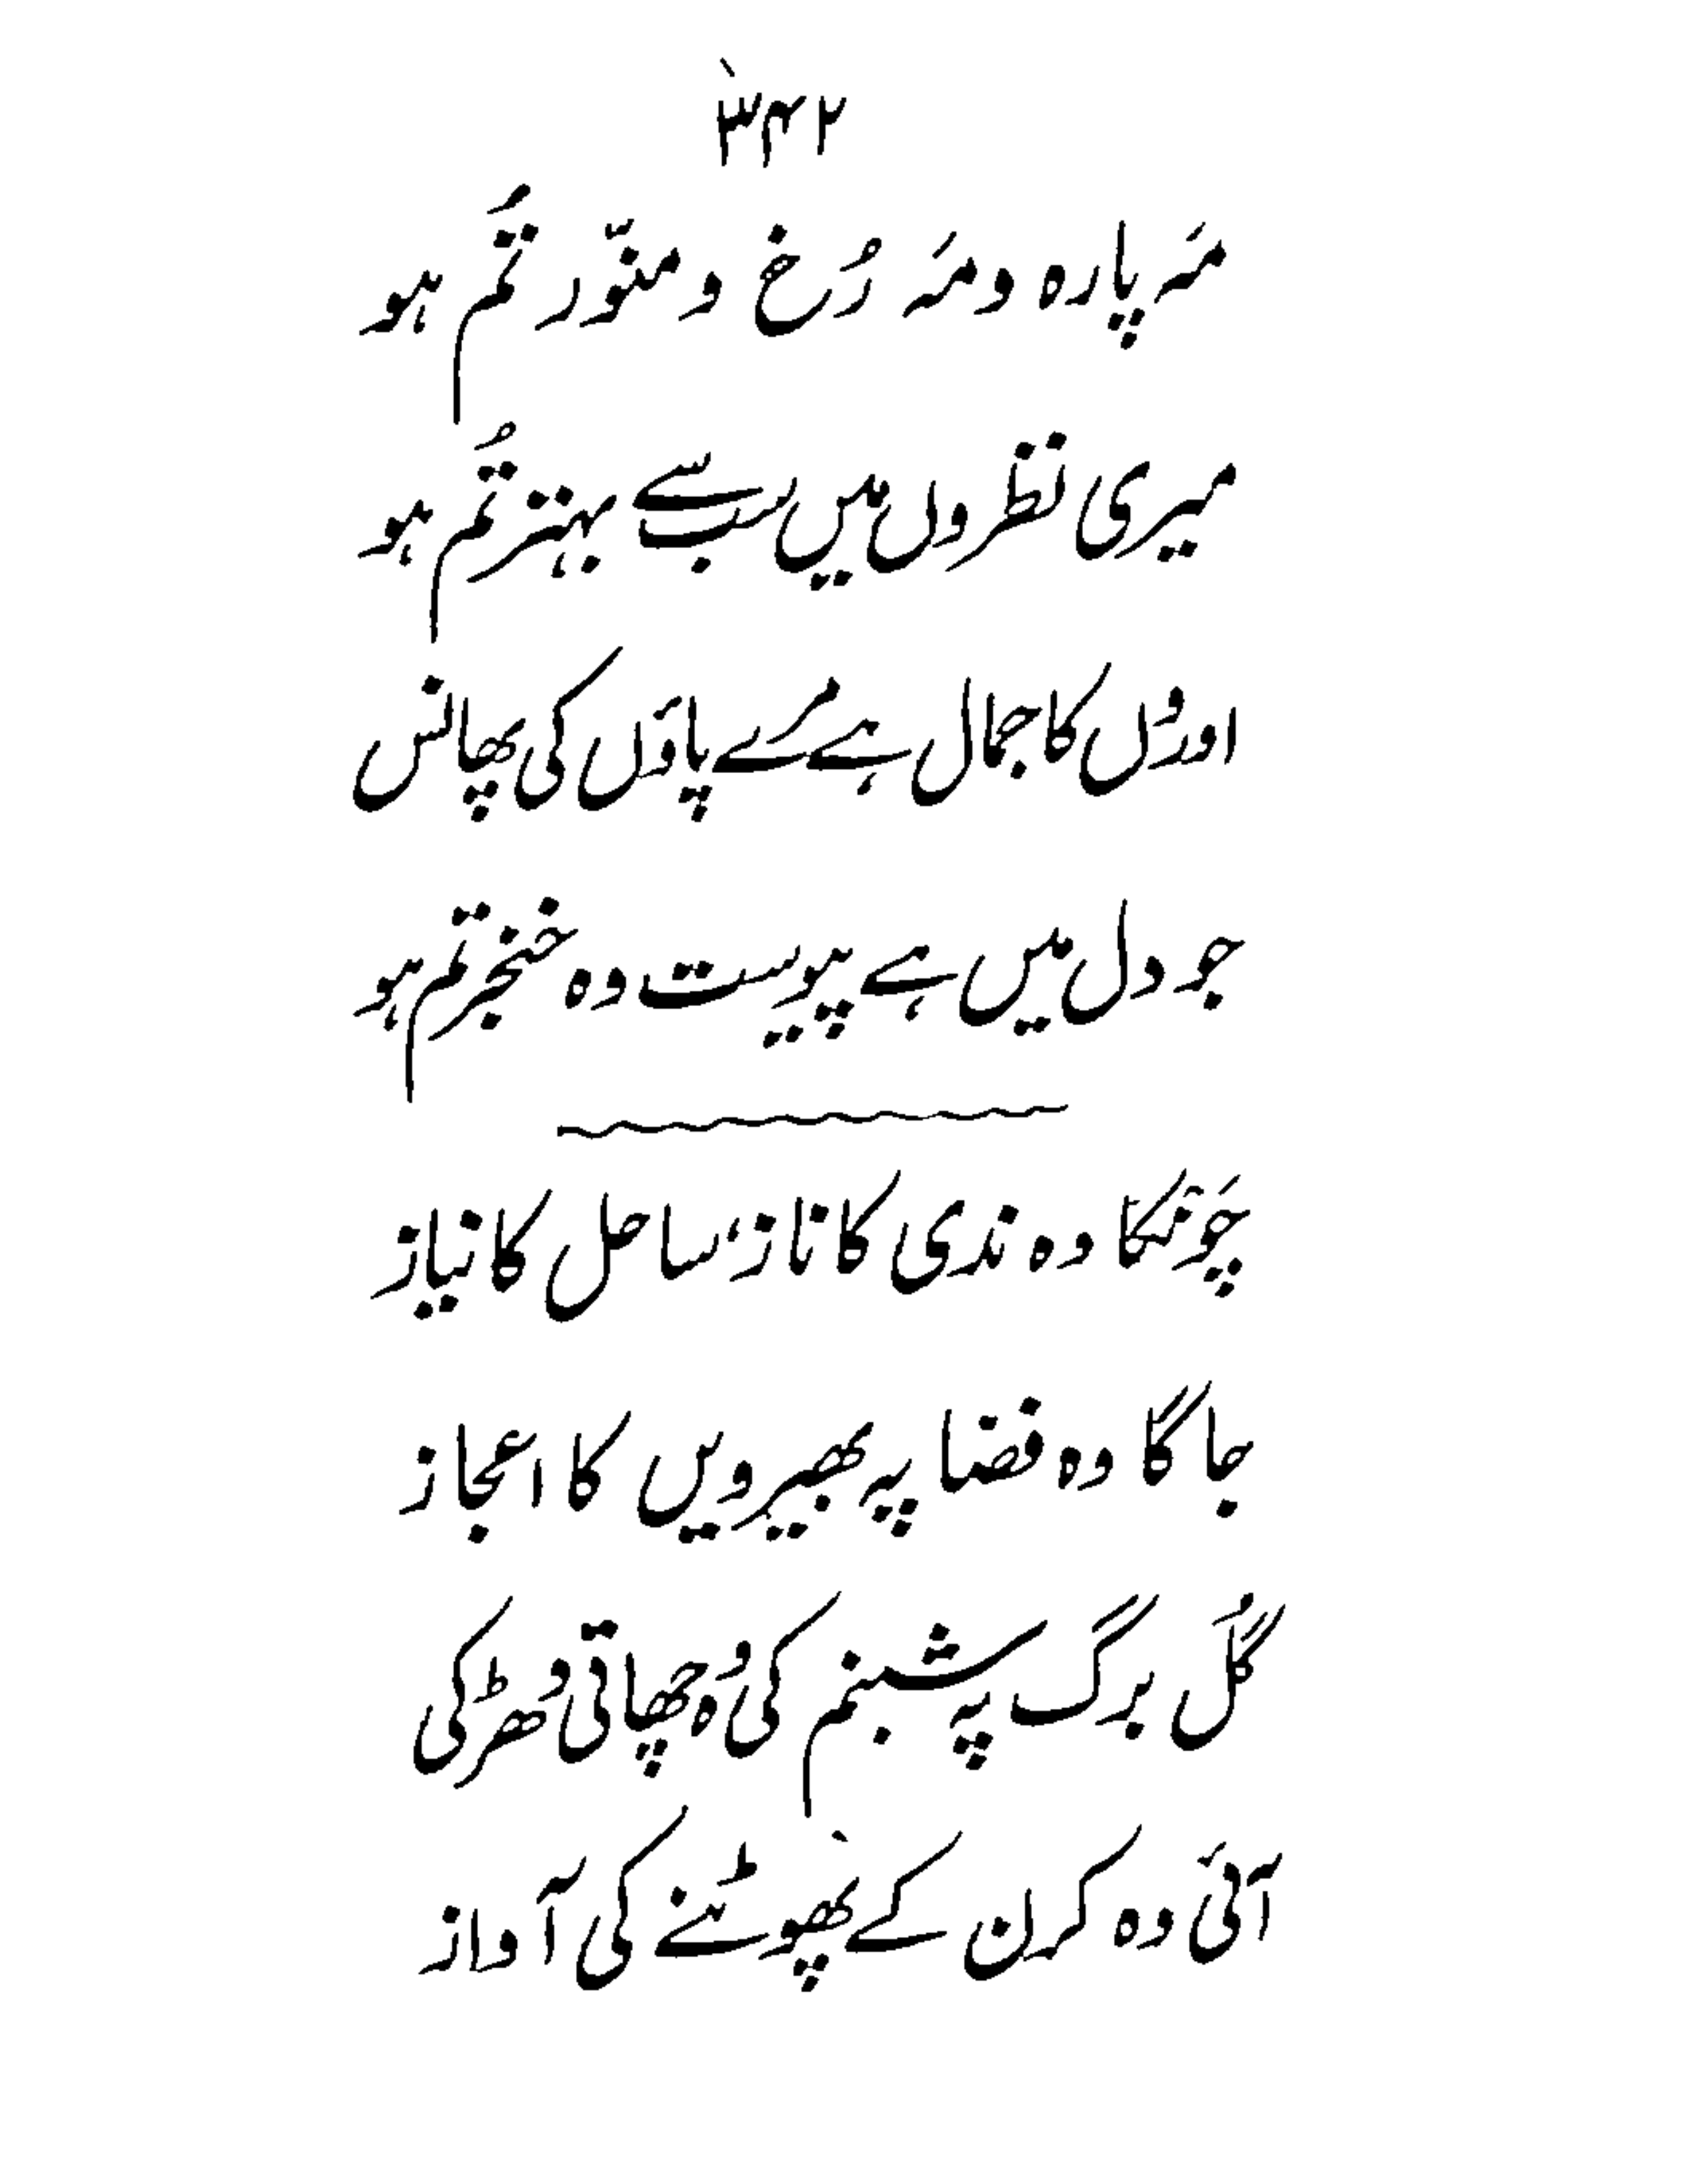 ۳۴۲
مَہ پارہ و مَہ رُخ و منوّر تُم ہو
میری نظروں میں سب سے بہتر تُم ہو
اوروں کا جمال ہے مرے پاؤں کی پھانس
جو دل میں ہے پیوست وہ خنجر تم ہو
چَونکا وہ ندی کا ناز، ساحل کا نیاز
جاگا وہ فضا پہ بھیرویں کا اعجاز
گُل برگ پہ شبنم کی وہ چھاتی دھڑکی
آئی وہ کرن کے پھوٹنے کی آواز